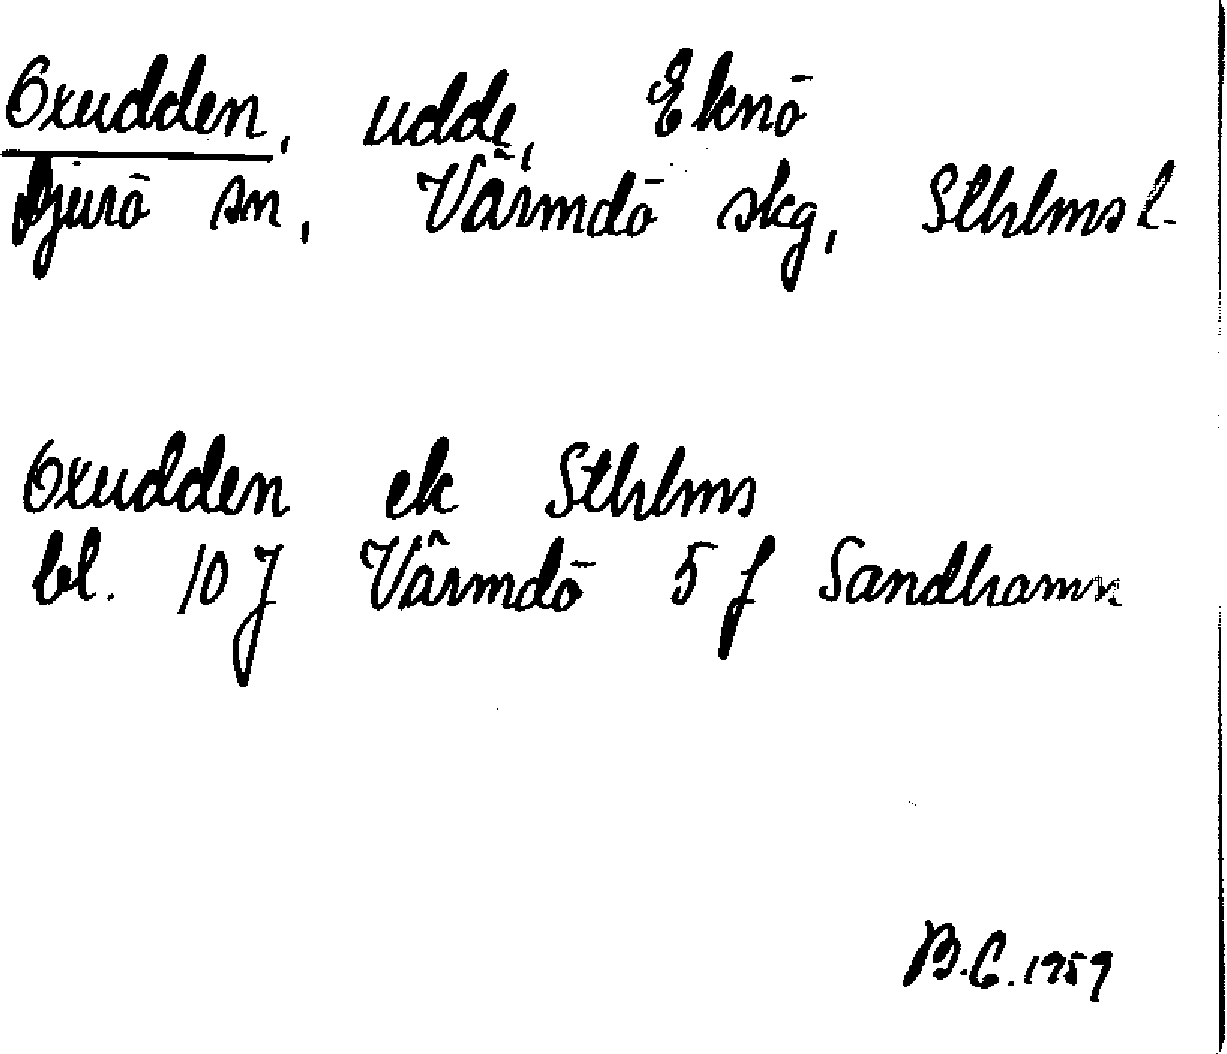 Oxudden, udde, Eknö
Djurö sn, Värmdö skg, Sthlms l.
Oxudden ek Sthlms
bl. 10 J Värmdö 5 f Sandhamn
B.C. 1959